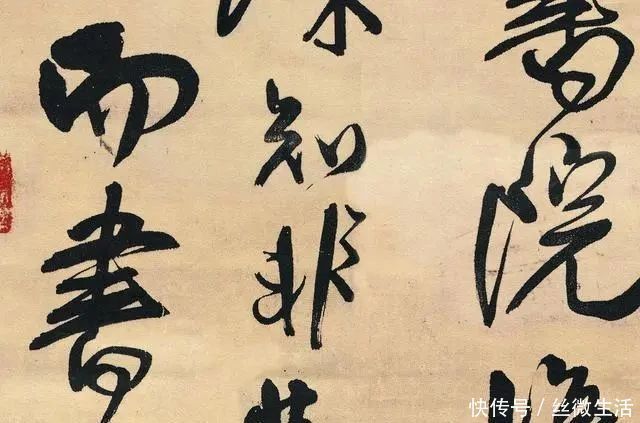 書院
知非
而書
快传号/丝微生活